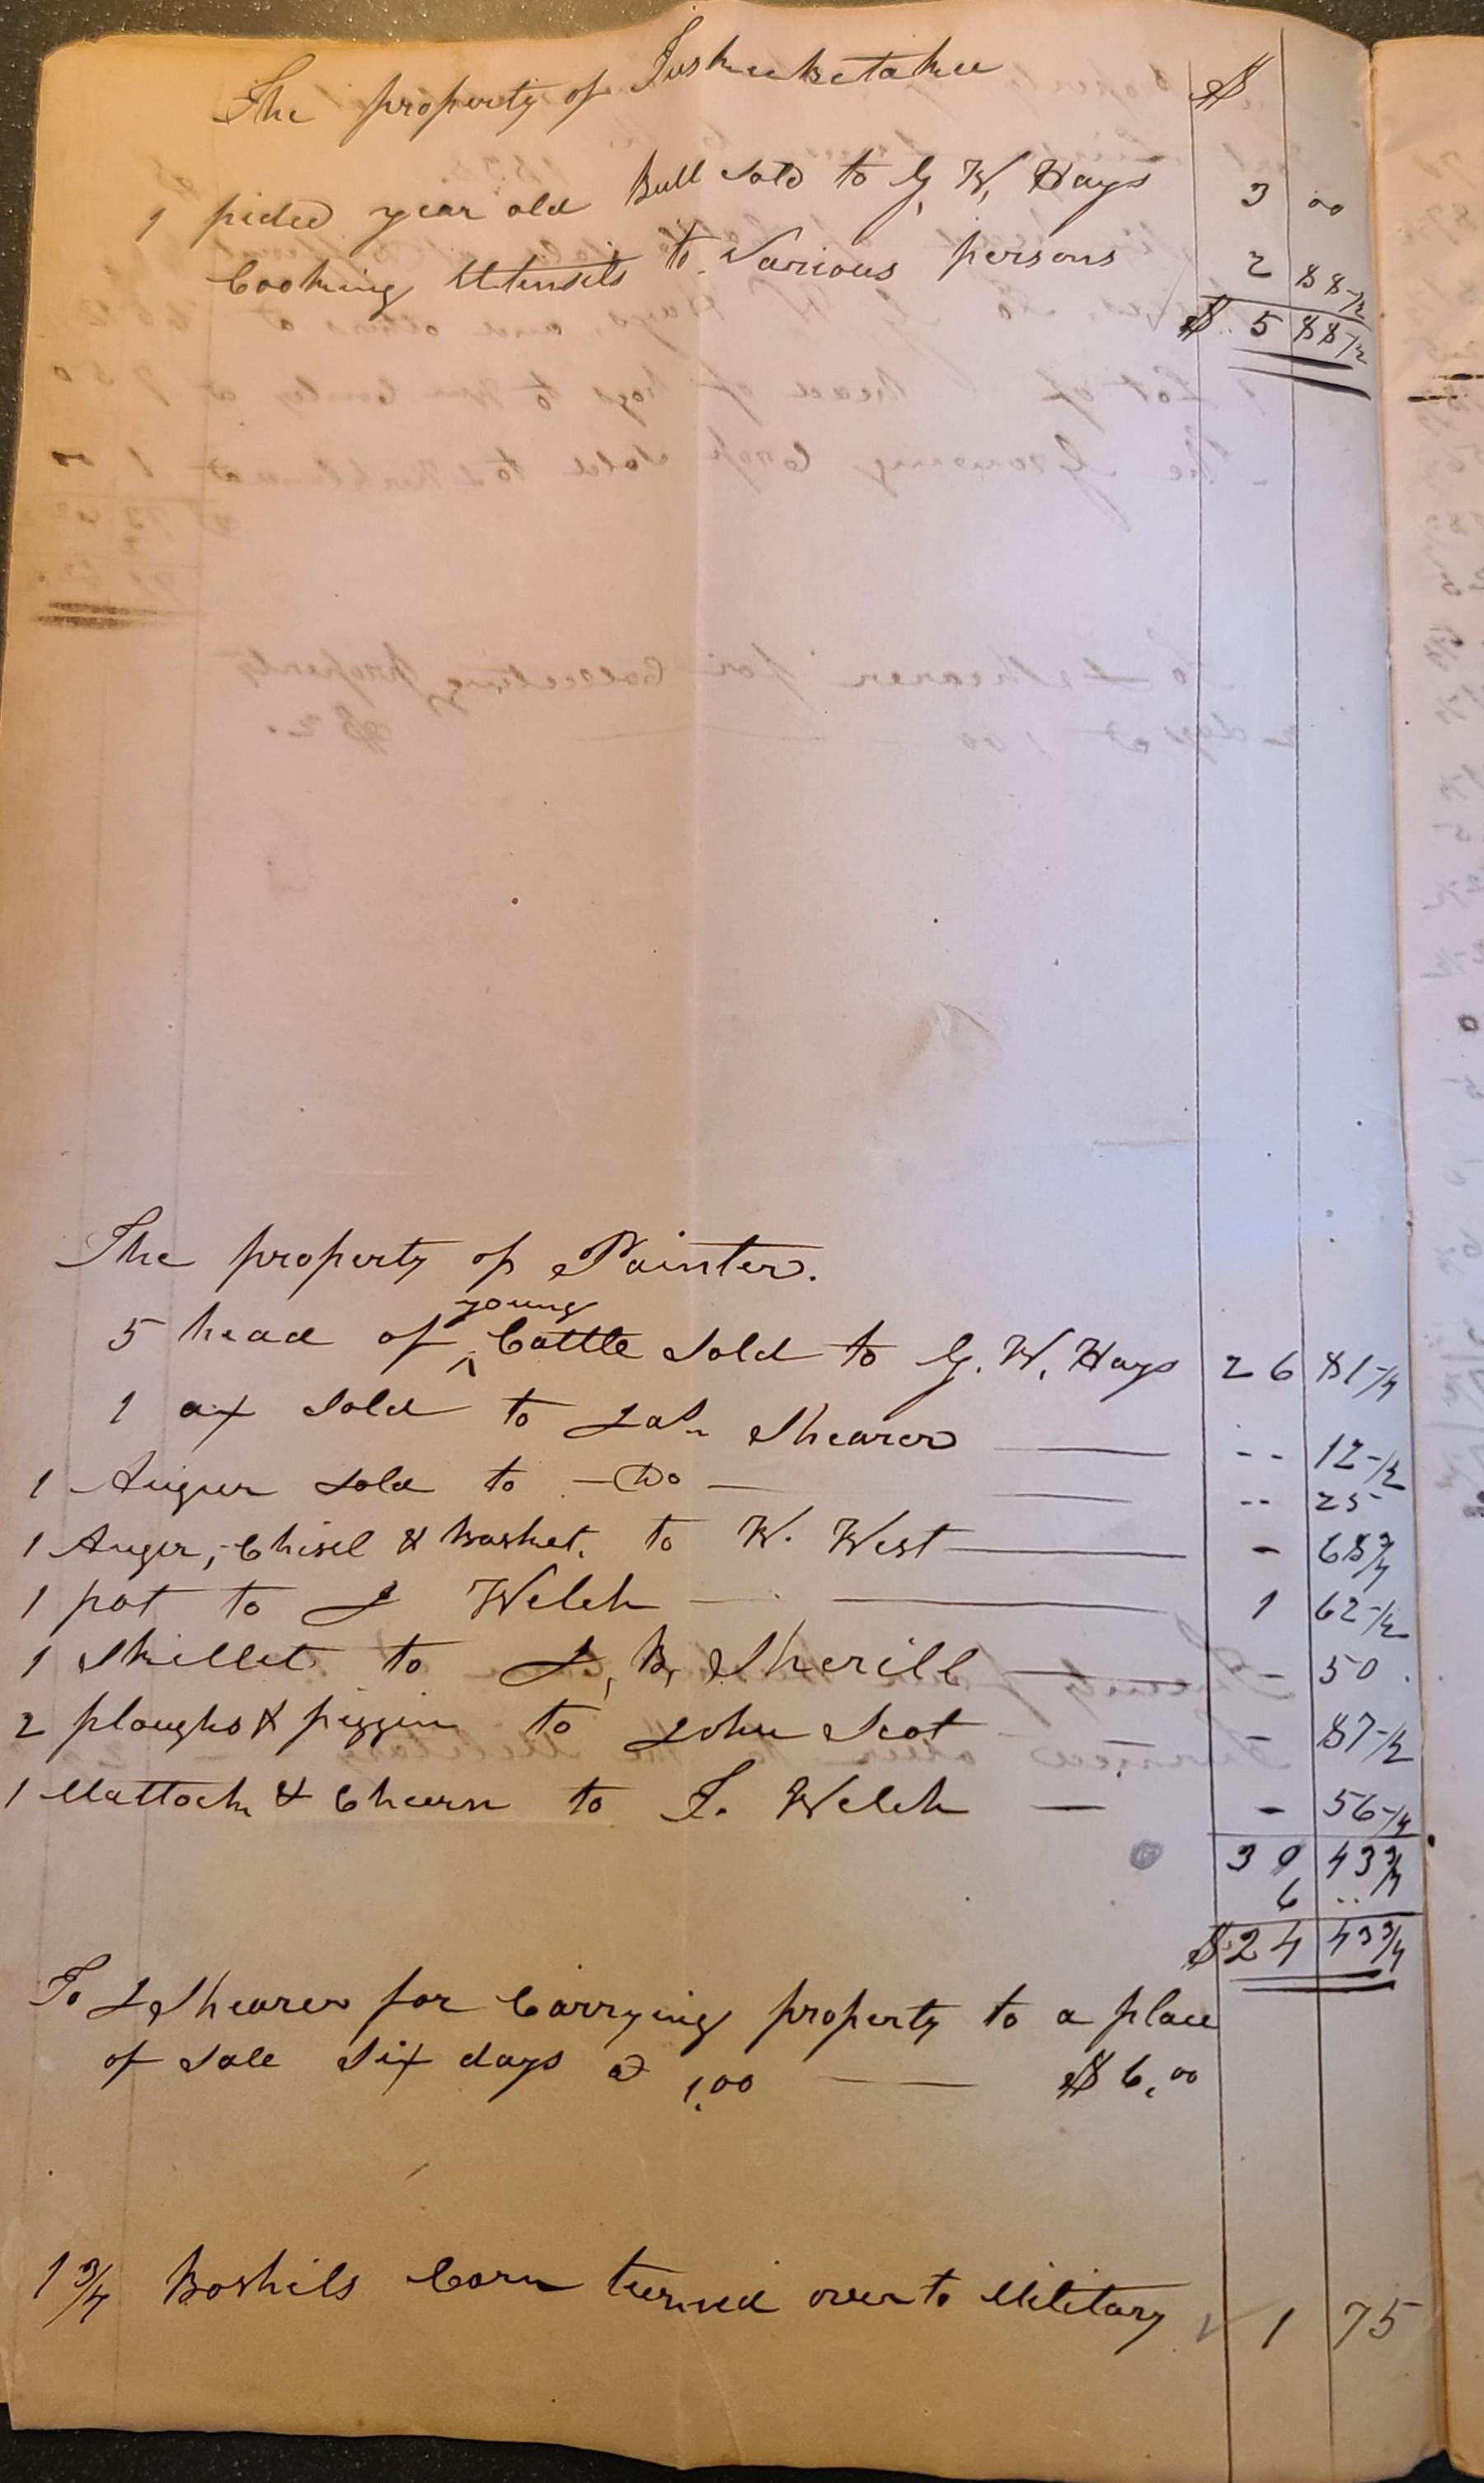 The property of Tuskeeketahee $
1 pided year old Bull sold to G. W. Hays 3 00
Cooking Utensils to Various persons 2 88 1/2
$ 5 88 1/2
The property of Painter.
5 head of ^young Cattle sold to G. W. Hays 26 81 1/4
1 ax sold to Jas. Shearer — -- 12 1/2
1 Augur sold to — Do — -- 25
1 Auger, Chisel & basket. to W. West — - 68 3/4
1 pot to J Welch — 1 62 1/2
1 Skillet to J, B, Sherill — - 50
2 ploughs & piggin to John Scot - 87 1/2
1 Mattock & Churn to J. Welch — - 56 1/4
30 43 3/4
6 ..
$ 24 43 3/4
To J Shearer for Carrying property to a place
of sale Six days @ 1.00 — $ 6.00
1 3/4 Boshils Corn turned over to Military 1 75